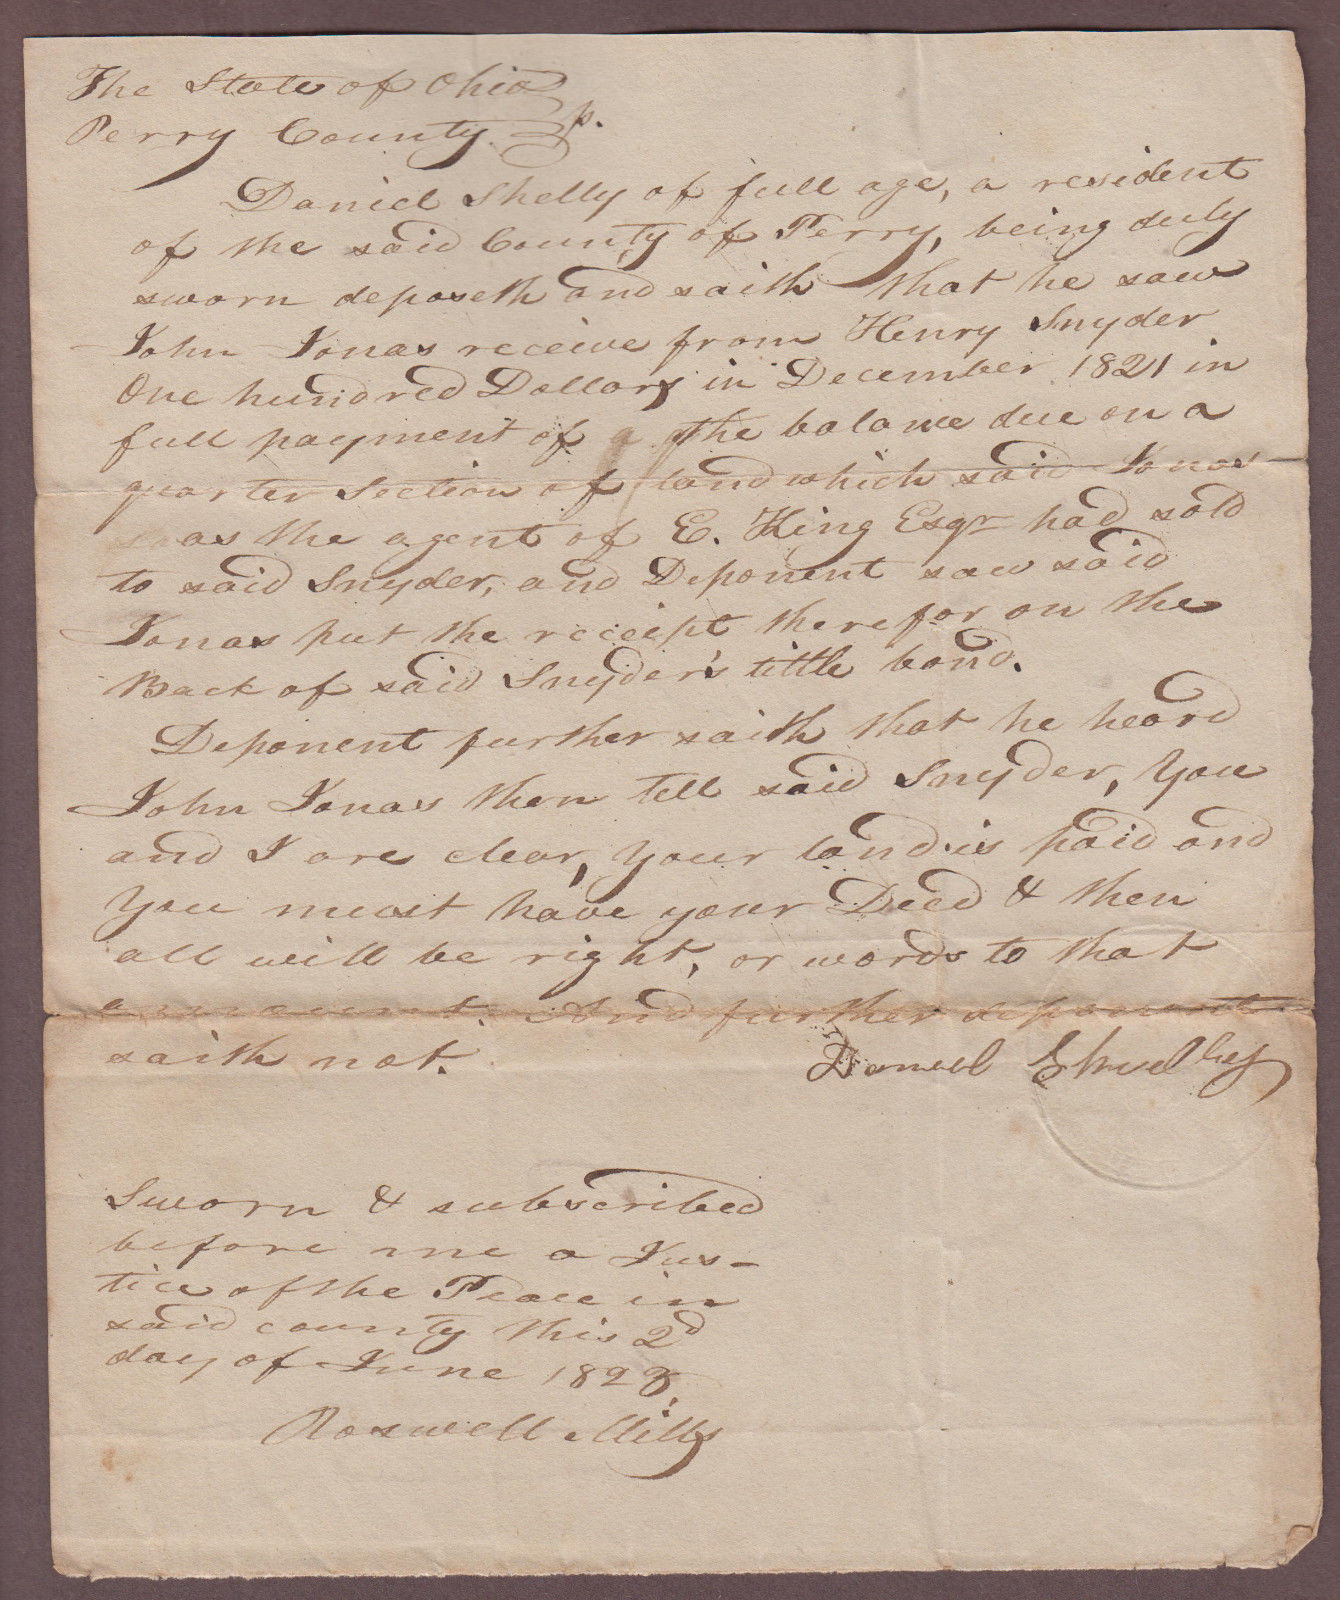 The State of Ohio
Perry County ss.
Daniel Shelly of full age, a resident
of the said County of Perry, being duly
sworn deposeth and saith that he saw
John Jonas receive from Henry Snyder
One hundred Dollars in December 1821 in
full payment of the balance due on a
quarter Section of land which said Jonas
as the agent of E. King Esqr had sold
to said Snyder, and Deponent saw said
Jonas put the receipt therefor on the
Back of said Snyder's tittle bond.
Deponent further saith that he heard
John Jonas then tell said Snyder, You
and I are clear, your land is paid and
You must have your Deed & then
all will be right, or words to that
amount. And further deponent
saith not. Daniel Shelley
Sworn & subscribed
before me a Jus-
tice of the Peace in
said county this 2d
day of June 1828
Roswell Mills